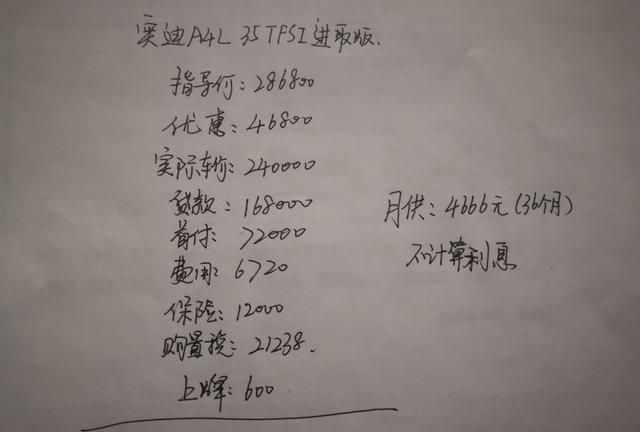 奥迪A4L 35TFSI进取版.
指导价: 286800
优惠: 46800
实际车价: 240000
贷款: 168000
首付: 72000
费用: 6720
保险: 12000
购置税: 21238.
上牌: 600
月供: 4666元(36个月)
不计算利息